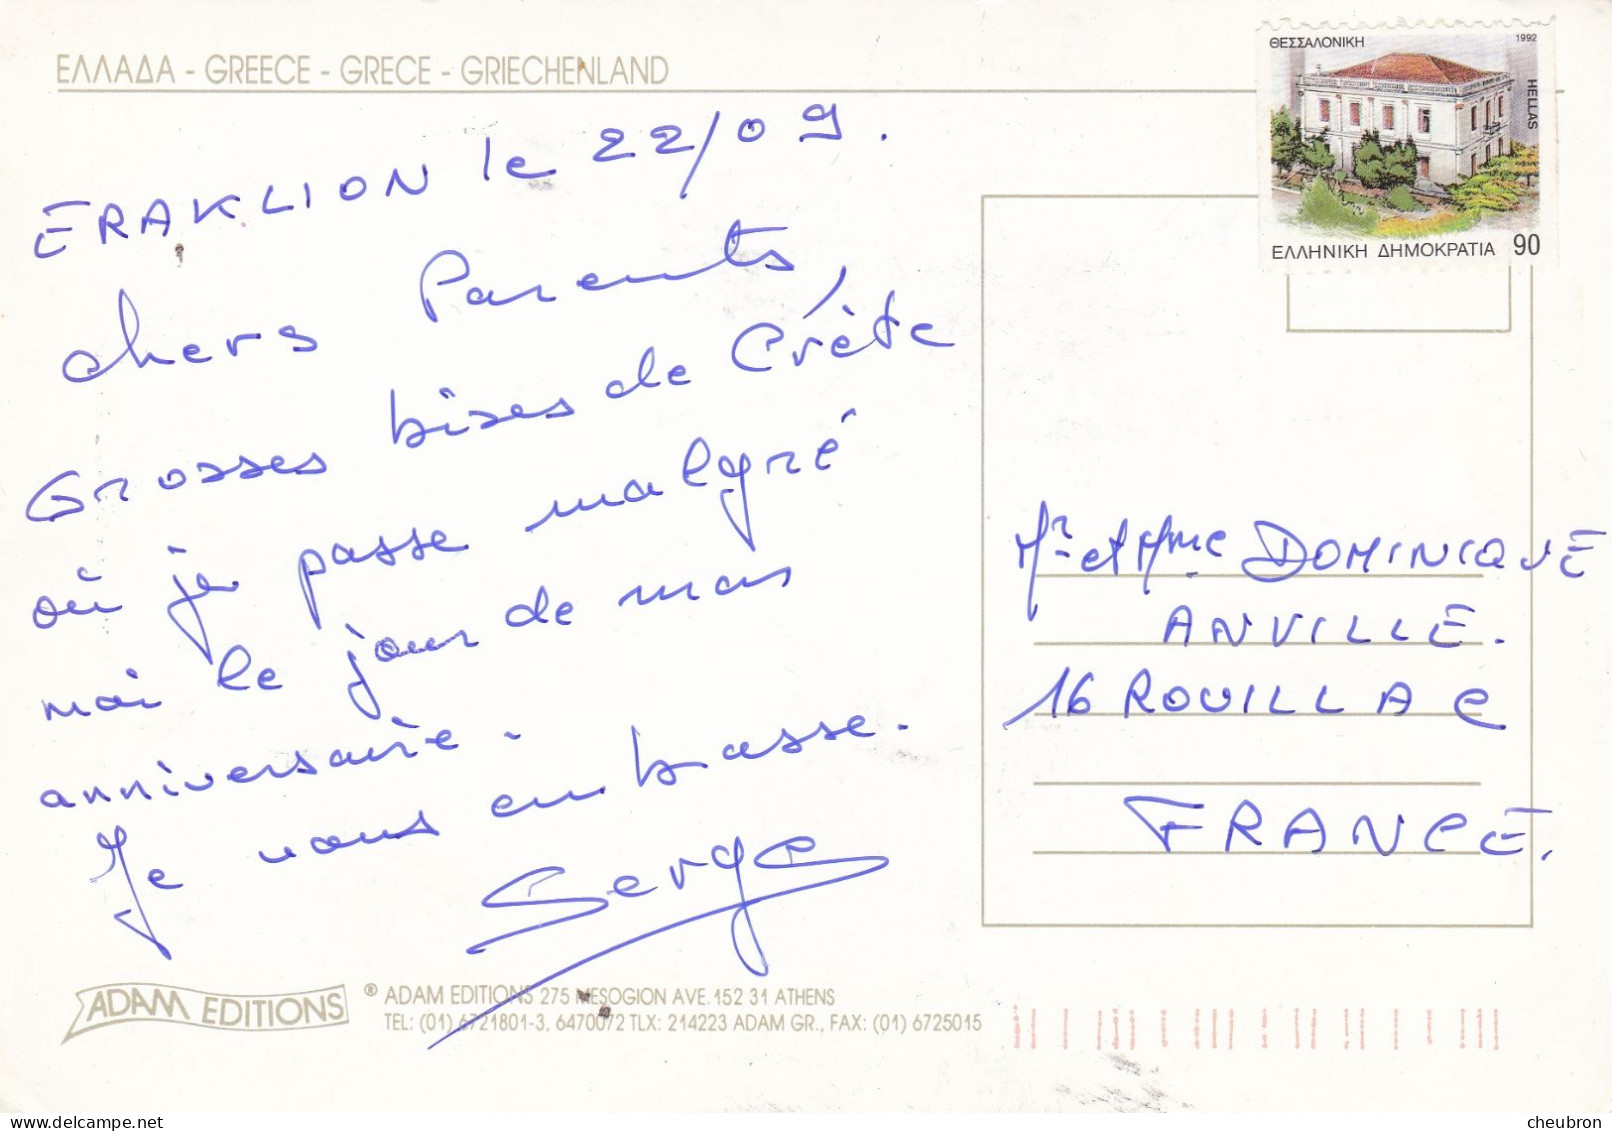 ΕΛΛΑΔΑ - GREECE - GRECE - GRIECHENLAND
ΘΕΣΣΑΛΟΝΙΚΗ 1992
HELLAS
ΕΛΛΗΝΙΚΗ ΔΗΜΟΚΡΑΤΙΑ 90
ERAKLION le 22/09.
chers Parents,
Grosses bises de Crète
où je passe malgré
moi le jour de mon
anniversaire.
Je vous embrasse.
Serge
Mr et Mme DOMINIQUE
ANVILLE.
16 ROUILLAC
FRANCE.
ADAM EDITIONS
® ADAM EDITIONS 275 MESOGION AVE. 152 31 ATHENS
TEL: (01) 6721801-3, 6470072 TLX: 214223 ADAM GR., FAX: (01) 6725015
cheubron